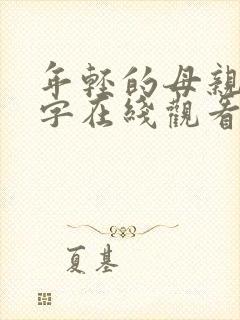 年轻的母親
字在綫觀看
夏基